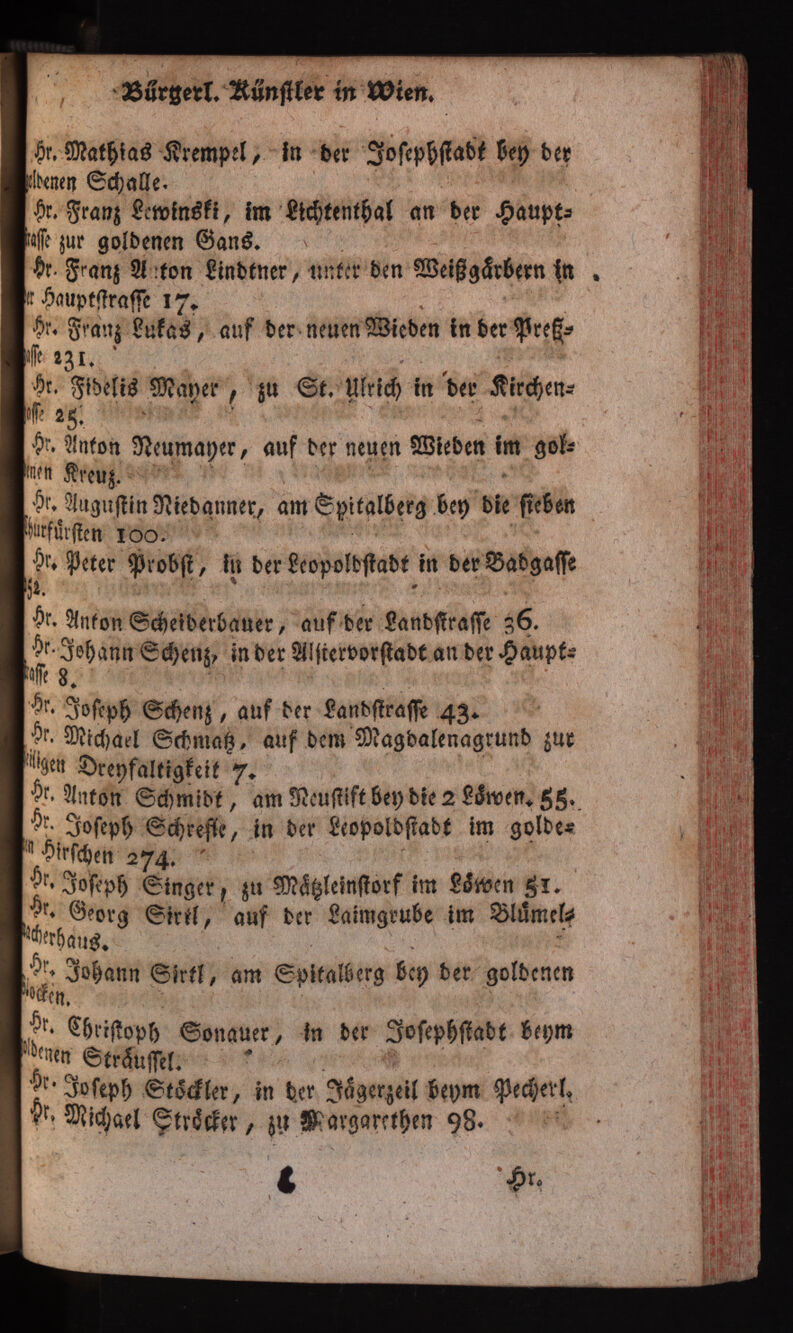 Bürgerl. Künstler in Wien.
Hr. Mathias Krempel, in der Josephstadt bey der
ldenen Schalle.
Hr. Franz Lewinski, im Lichtenthal an der Haupt-
asse zur goldenen Gans.
Hr. Franz A ton Lindtner, unter den Weißgärbern in
r Hauptstrasse 17.
Hr. Franz Lukas, auf der neuen Wieden in der Preß-
asse 231.
Hr. Fidelis Mayer, zu St. Ulrich in der Kirchen-
asse 25.
Hr. Anton Neumayer, auf der neuen Wieden im gol-
nen Kreuz.
Hr. Augustin Niedanner, am Spitalberg bey die sieben
hurfürsten 100.
Hr. Peter Probst, in der Leopoldstadt in der Badgasse
52.
Hr. Anton Scheiderbauer, auf der Landstrasse 36.
Hr. Johann Schenz, in der Alstervorstadt an der Haupt-
asse 8.
Hr. Joseph Schenz, auf der Landstrasse 43.
Hr. Michael Schmatz, auf dem Magdalenagrund zur
iligen Dreyfaltigkeit 7.
Hr. Anton Schmidt, am Neustift bey die 2 Löwen. 55.
Hr. Joseph Schrefle, in der Leopoldstadt im golde-
n Hirschen 274.
Hr. Joseph Singer, zu Mätzleinstorf im Löwen 51.
Hr. Georg Sirtl, auf der Laimgrube im Blümel-
acherhaus.
Hr. Johann Sirtl, am Spitalberg bey der goldenen
locken.
Hr. Christoph Sonauer, in der Josephstadt beym
ldenen Sträussel.
Hr. Joseph Stöckler, in der Jägerzeil beym Pecherl.
Hr. Michael Ströcker, zu Margarethen 98.
L Hr.